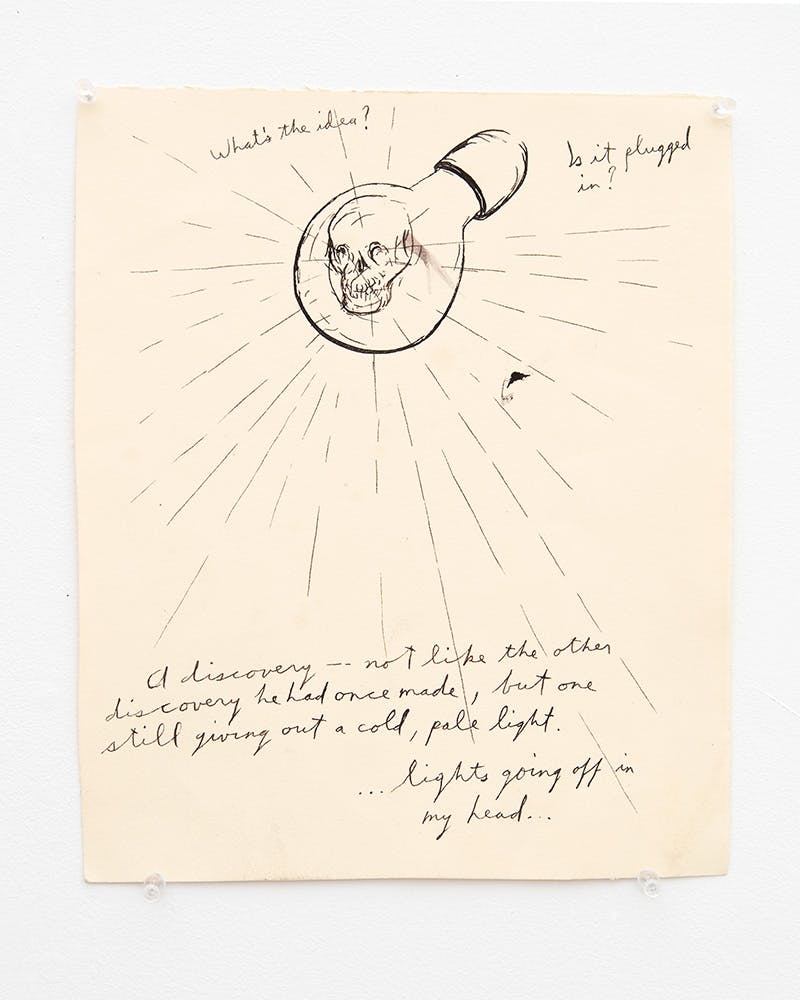 What's the idea?
Is it plugged
in?
A discovery -- not like the other
discovery he had once made, but one
still giving out a cold, pale light.
... lights going off in
my head...